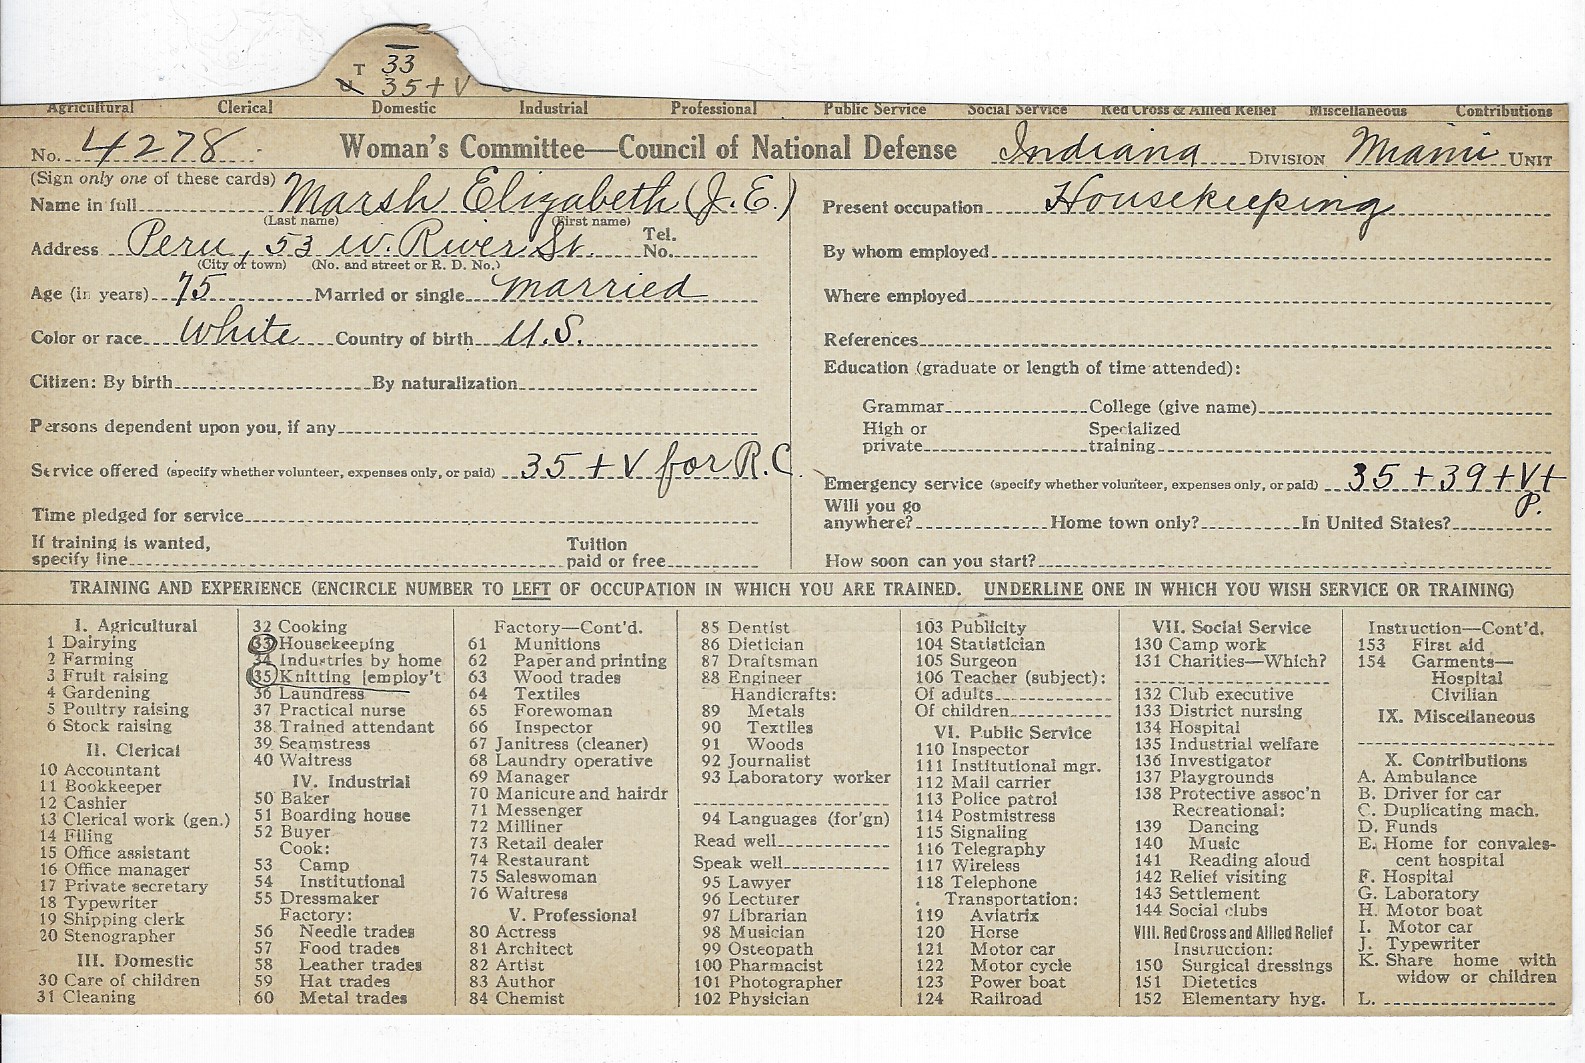 T 33
35 + V
Agricultural Clerical Domestic Industrial Professional Public Service Social Service Red Cross & Allied Relief Miscellaneous Contributions
No. 4278 Woman's Committee—Council of National Defense Indiana DIVISION Miami UNIT
(Sign only one of these cards)
Name in full Marsh Elizabeth (J. E.)
(Last name) (First name)
Address Peru, 53 W. River St. Tel. No.
(City or town) (No. and street or R. D. No.)
Age (in years) 75 Married or single married
Color or race White Country of birth U.S.
Citizen: By birth By naturalization
Persons dependent upon you, if any
Service offered (specify whether volunteer, expenses only, or paid) 35 + V for R.C.
Time pledged for service
If training is wanted, specify line Tuition paid or free
Present occupation Housekeeping
By whom employed
Where employed
References
Education (graduate or length of time attended):
Grammar College (give name)
High or private Specialized training
Emergency service (specify whether volunteer, expenses only, or paid) 35 + 39 + V +
P.
Will you go anywhere? Home town only? In United States?
How soon can you start?
TRAINING AND EXPERIENCE (ENCIRCLE NUMBER TO LEFT OF OCCUPATION IN WHICH YOU ARE TRAINED. UNDERLINE ONE IN WHICH YOU WISH SERVICE OR TRAINING)
I. Agricultural
1 Dairying
2 Farming
3 Fruit raising
4 Gardening
5 Poultry raising
6 Stock raising
II. Clerical
10 Accountant
11 Bookkeeper
12 Cashier
13 Clerical work (gen.)
14 Filing
15 Office assistant
16 Office manager
17 Private secretary
18 Typewriter
19 Shipping clerk
20 Stenographer
III. Domestic
30 Care of children
31 Cleaning
32 Cooking
33 Housekeeping
34 Industries by home
35 Knitting [employ't
36 Laundress
37 Practical nurse
38 Trained attendant
39 Seamstress
40 Waitress
IV. Industrial
50 Baker
51 Boarding house
52 Buyer
Cook:
53 Camp
54 Institutional
55 Dressmaker
Factory:
56 Needle trades
57 Food trades
58 Leather trades
59 Hat trades
60 Metal trades
Factory—Cont'd.
61 Munitions
62 Paper and printing
63 Wood trades
64 Textiles
65 Forewoman
66 Inspector
67 Janitress (cleaner)
68 Laundry operative
69 Manager
70 Manicure and hairdr
71 Messenger
72 Milliner
73 Retail dealer
74 Restaurant
75 Saleswoman
76 Waitress
V. Professional
80 Actress
81 Architect
82 Artist
83 Author
84 Chemist
85 Dentist
86 Dietician
87 Draftsman
88 Engineer
Handicrafts:
89 Metals
90 Textiles
91 Woods
92 Journalist
93 Laboratory worker
94 Languages (for'gn)
Read well
Speak well
95 Lawyer
96 Lecturer
97 Librarian
98 Musician
99 Osteopath
100 Pharmacist
101 Photographer
102 Physician
103 Publicity
104 Statistician
105 Surgeon
106 Teacher (subject):
Of adults
Of children
VI. Public Service
110 Inspector
111 Institutional mgr.
112 Mail carrier
113 Police patrol
114 Postmistress
115 Signaling
116 Telegraphy
117 Wireless
118 Telephone
Transportation:
119 Aviatrix
120 Horse
121 Motor car
122 Motor cycle
123 Power boat
124 Railroad
VII. Social Service
130 Camp work
131 Charities—Which?
132 Club executive
133 District nursing
134 Hospital
135 Industrial welfare
136 Investigator
137 Playgrounds
138 Protective assoc'n
Recreational:
139 Dancing
140 Music
141 Reading aloud
142 Relief visiting
143 Settlement
144 Social clubs
VIII. Red Cross and Allied Relief
Instruction:
150 Surgical dressings
151 Dietetics
152 Elementary hyg.
Instruction—Cont'd.
153 First aid
154 Garments—
Hospital
Civilian
IX. Miscellaneous
X. Contributions
A. Ambulance
B. Driver for car
C. Duplicating mach.
D. Funds
E. Home for convales-
cent hospital
F. Hospital
G. Laboratory
H. Motor boat
I. Motor car
J. Typewriter
K. Share home with
widow or children
L.